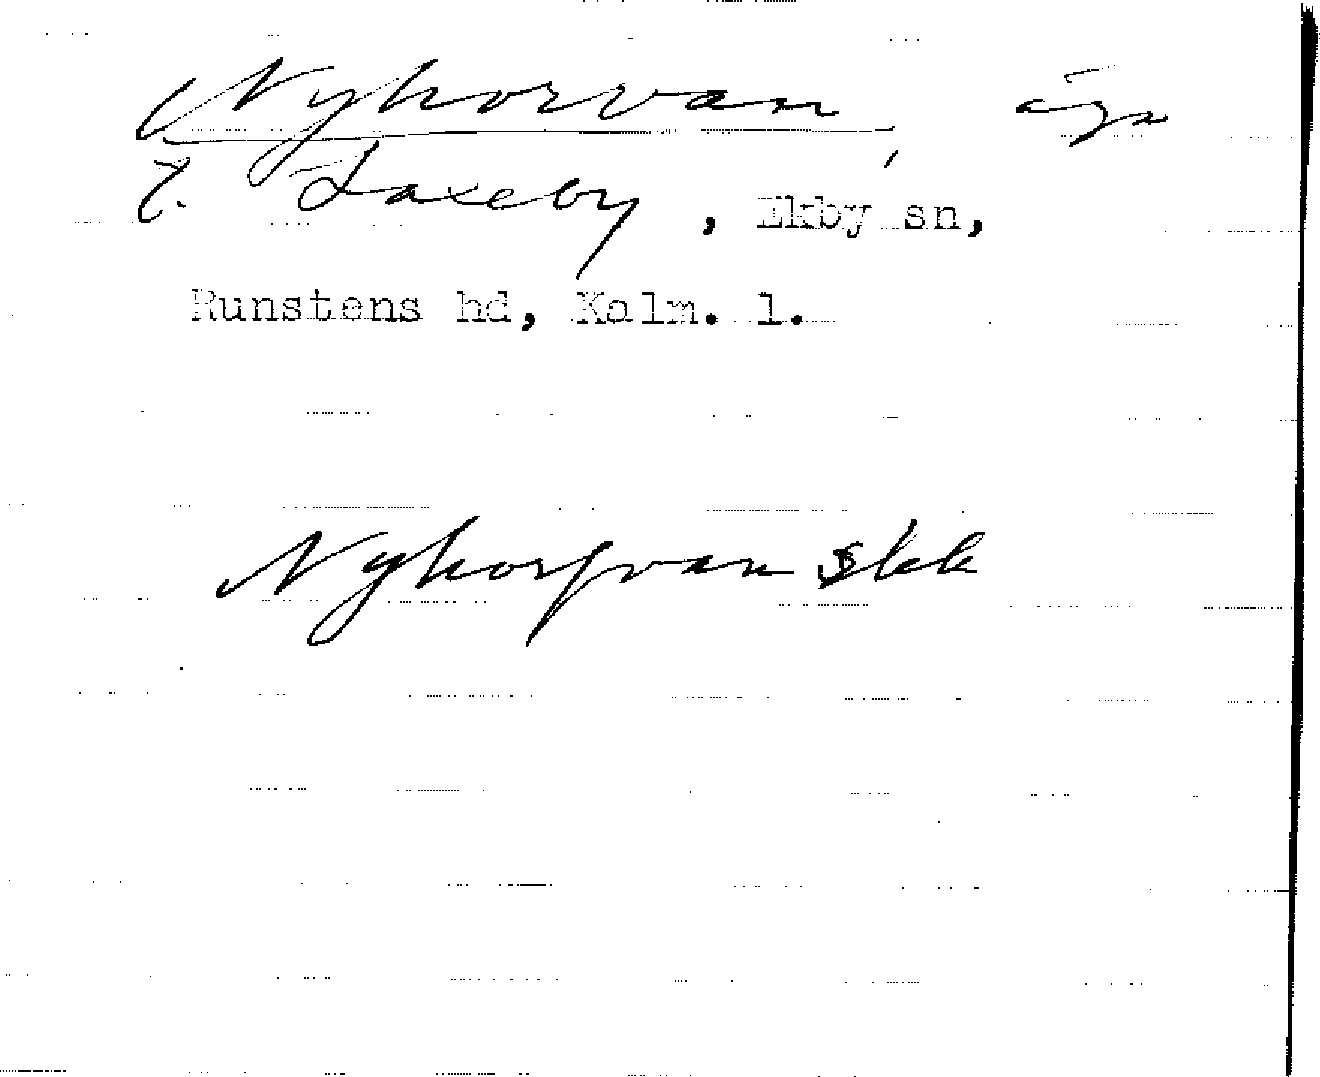 Nyhorvan, äga
t. Laxeby, Ekby sn,
Runstens hd, Kalm. l.
Nyhorfvan skk